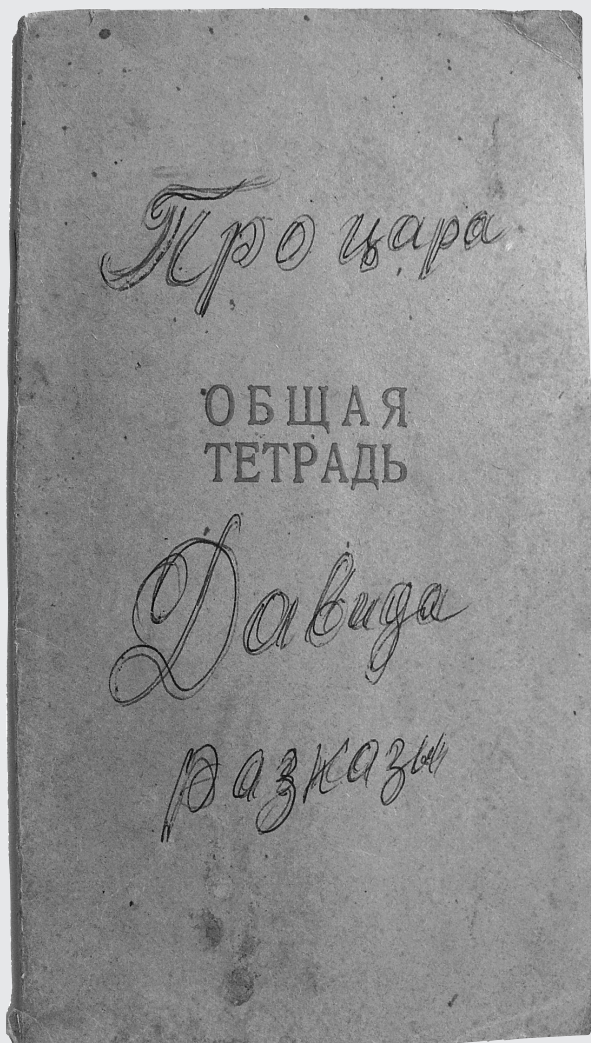 Про цара
ОБЩАЯ
ТЕТРАДЬ
Давида
разказы